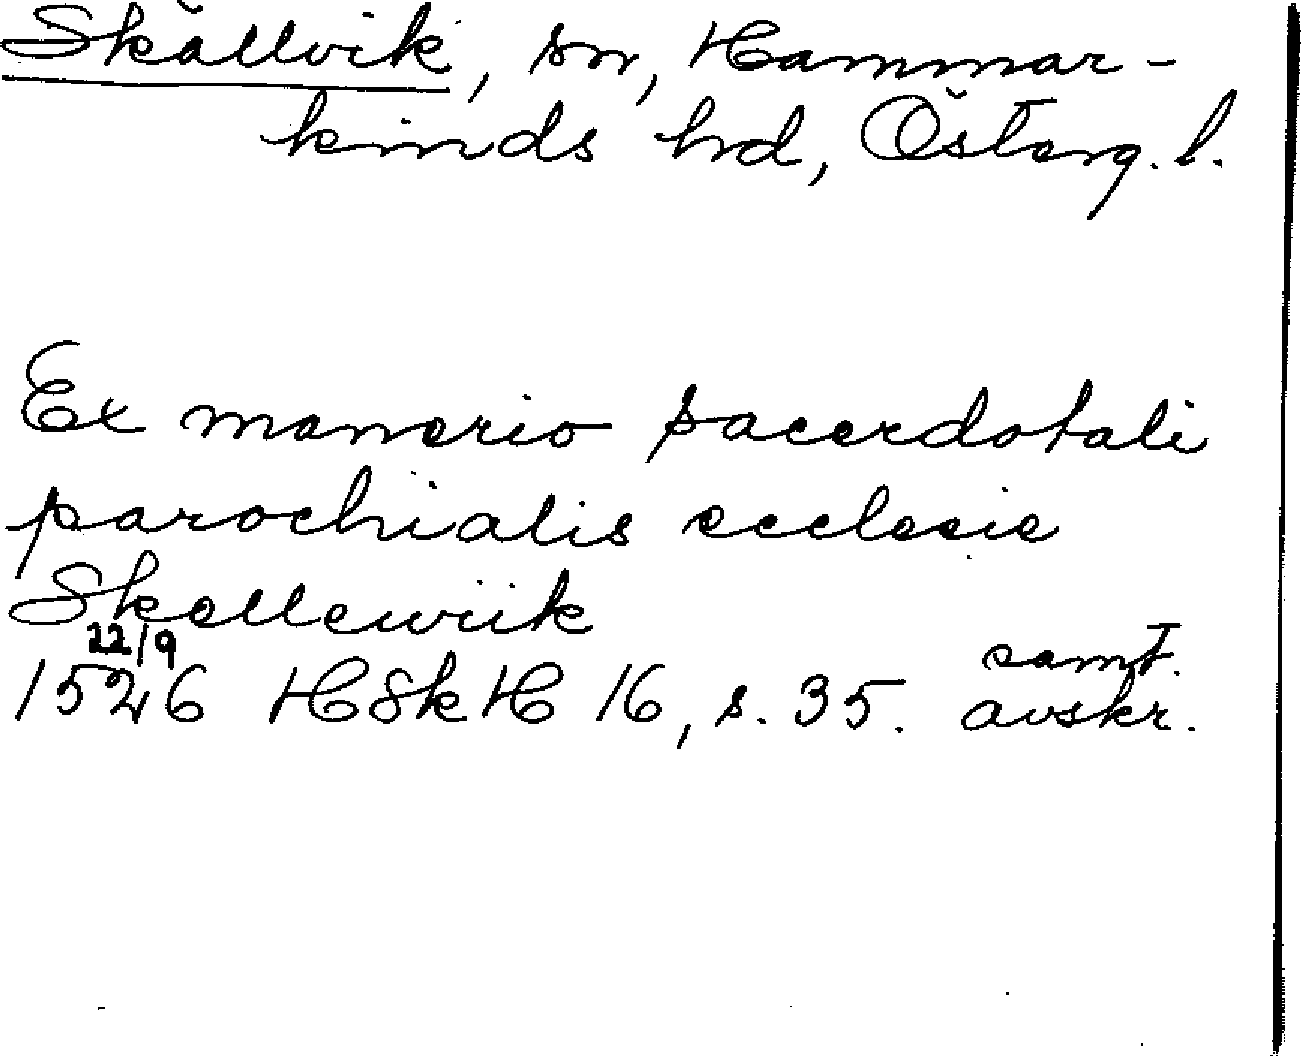 Skällvik, sn, Hammar-
kinds hd, Österg. l.
Ex manerio sacerdotali
parochialis ecclesie
Skellewiik
22/9
1526 HSkH 16, s. 35. samt.
avskr.